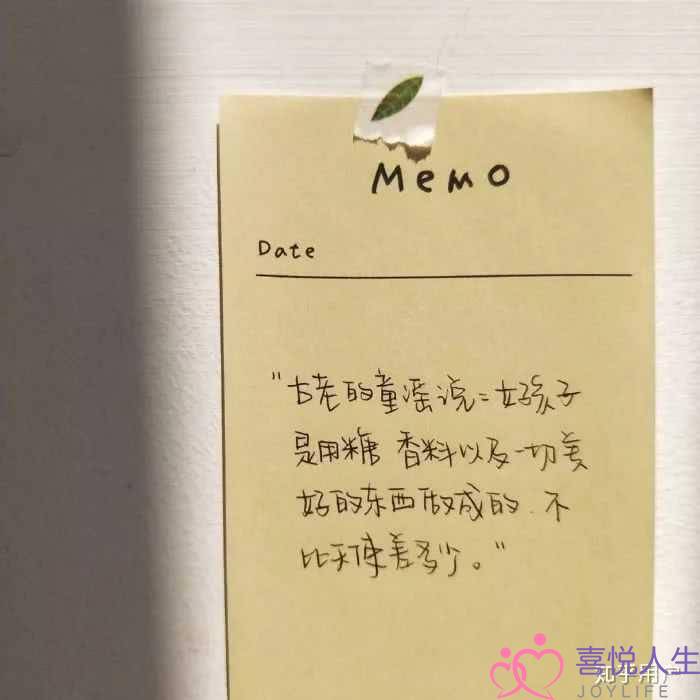 Memo
Date
“古老的童谣说：好孩子
是用糖 香料以及一切美
好的东西做成的、不
比天使差多少。”
知乎用户
喜悦人生
JOYLIFE